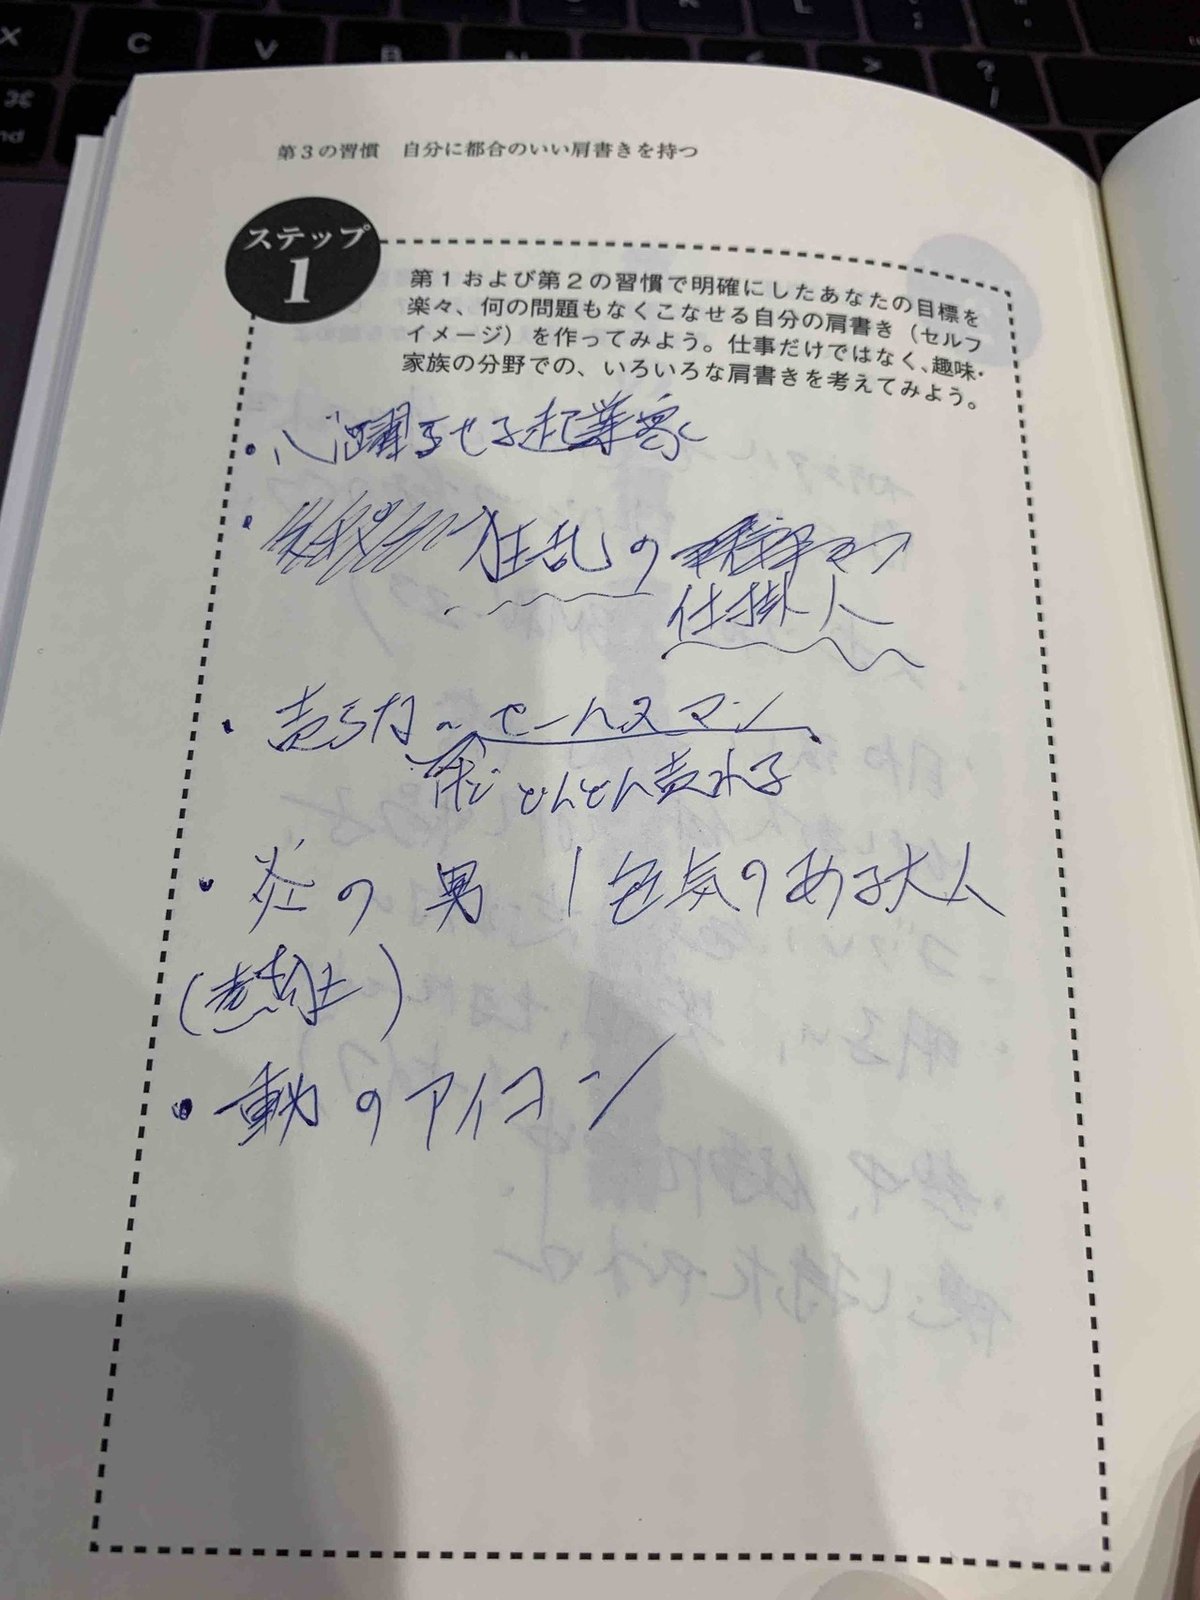 第3の習慣 自分に都合のいい肩書きを持つ
ステップ
1
第1および第2の習慣で明確にしたあなたの目標を
楽々、何の問題もなくこなせる自分の肩書き（セルフ
イメージ）を作ってみよう。仕事だけではなく、趣味・
家族の分野での、いろいろな肩書きを考えてみよう。
・心躍らせる起業家
・狂乱の
仕掛人
・売らないセールスマン
どんどん売れる
・炎の男 / 色気のある大人
・動のアイコン
X C V B N